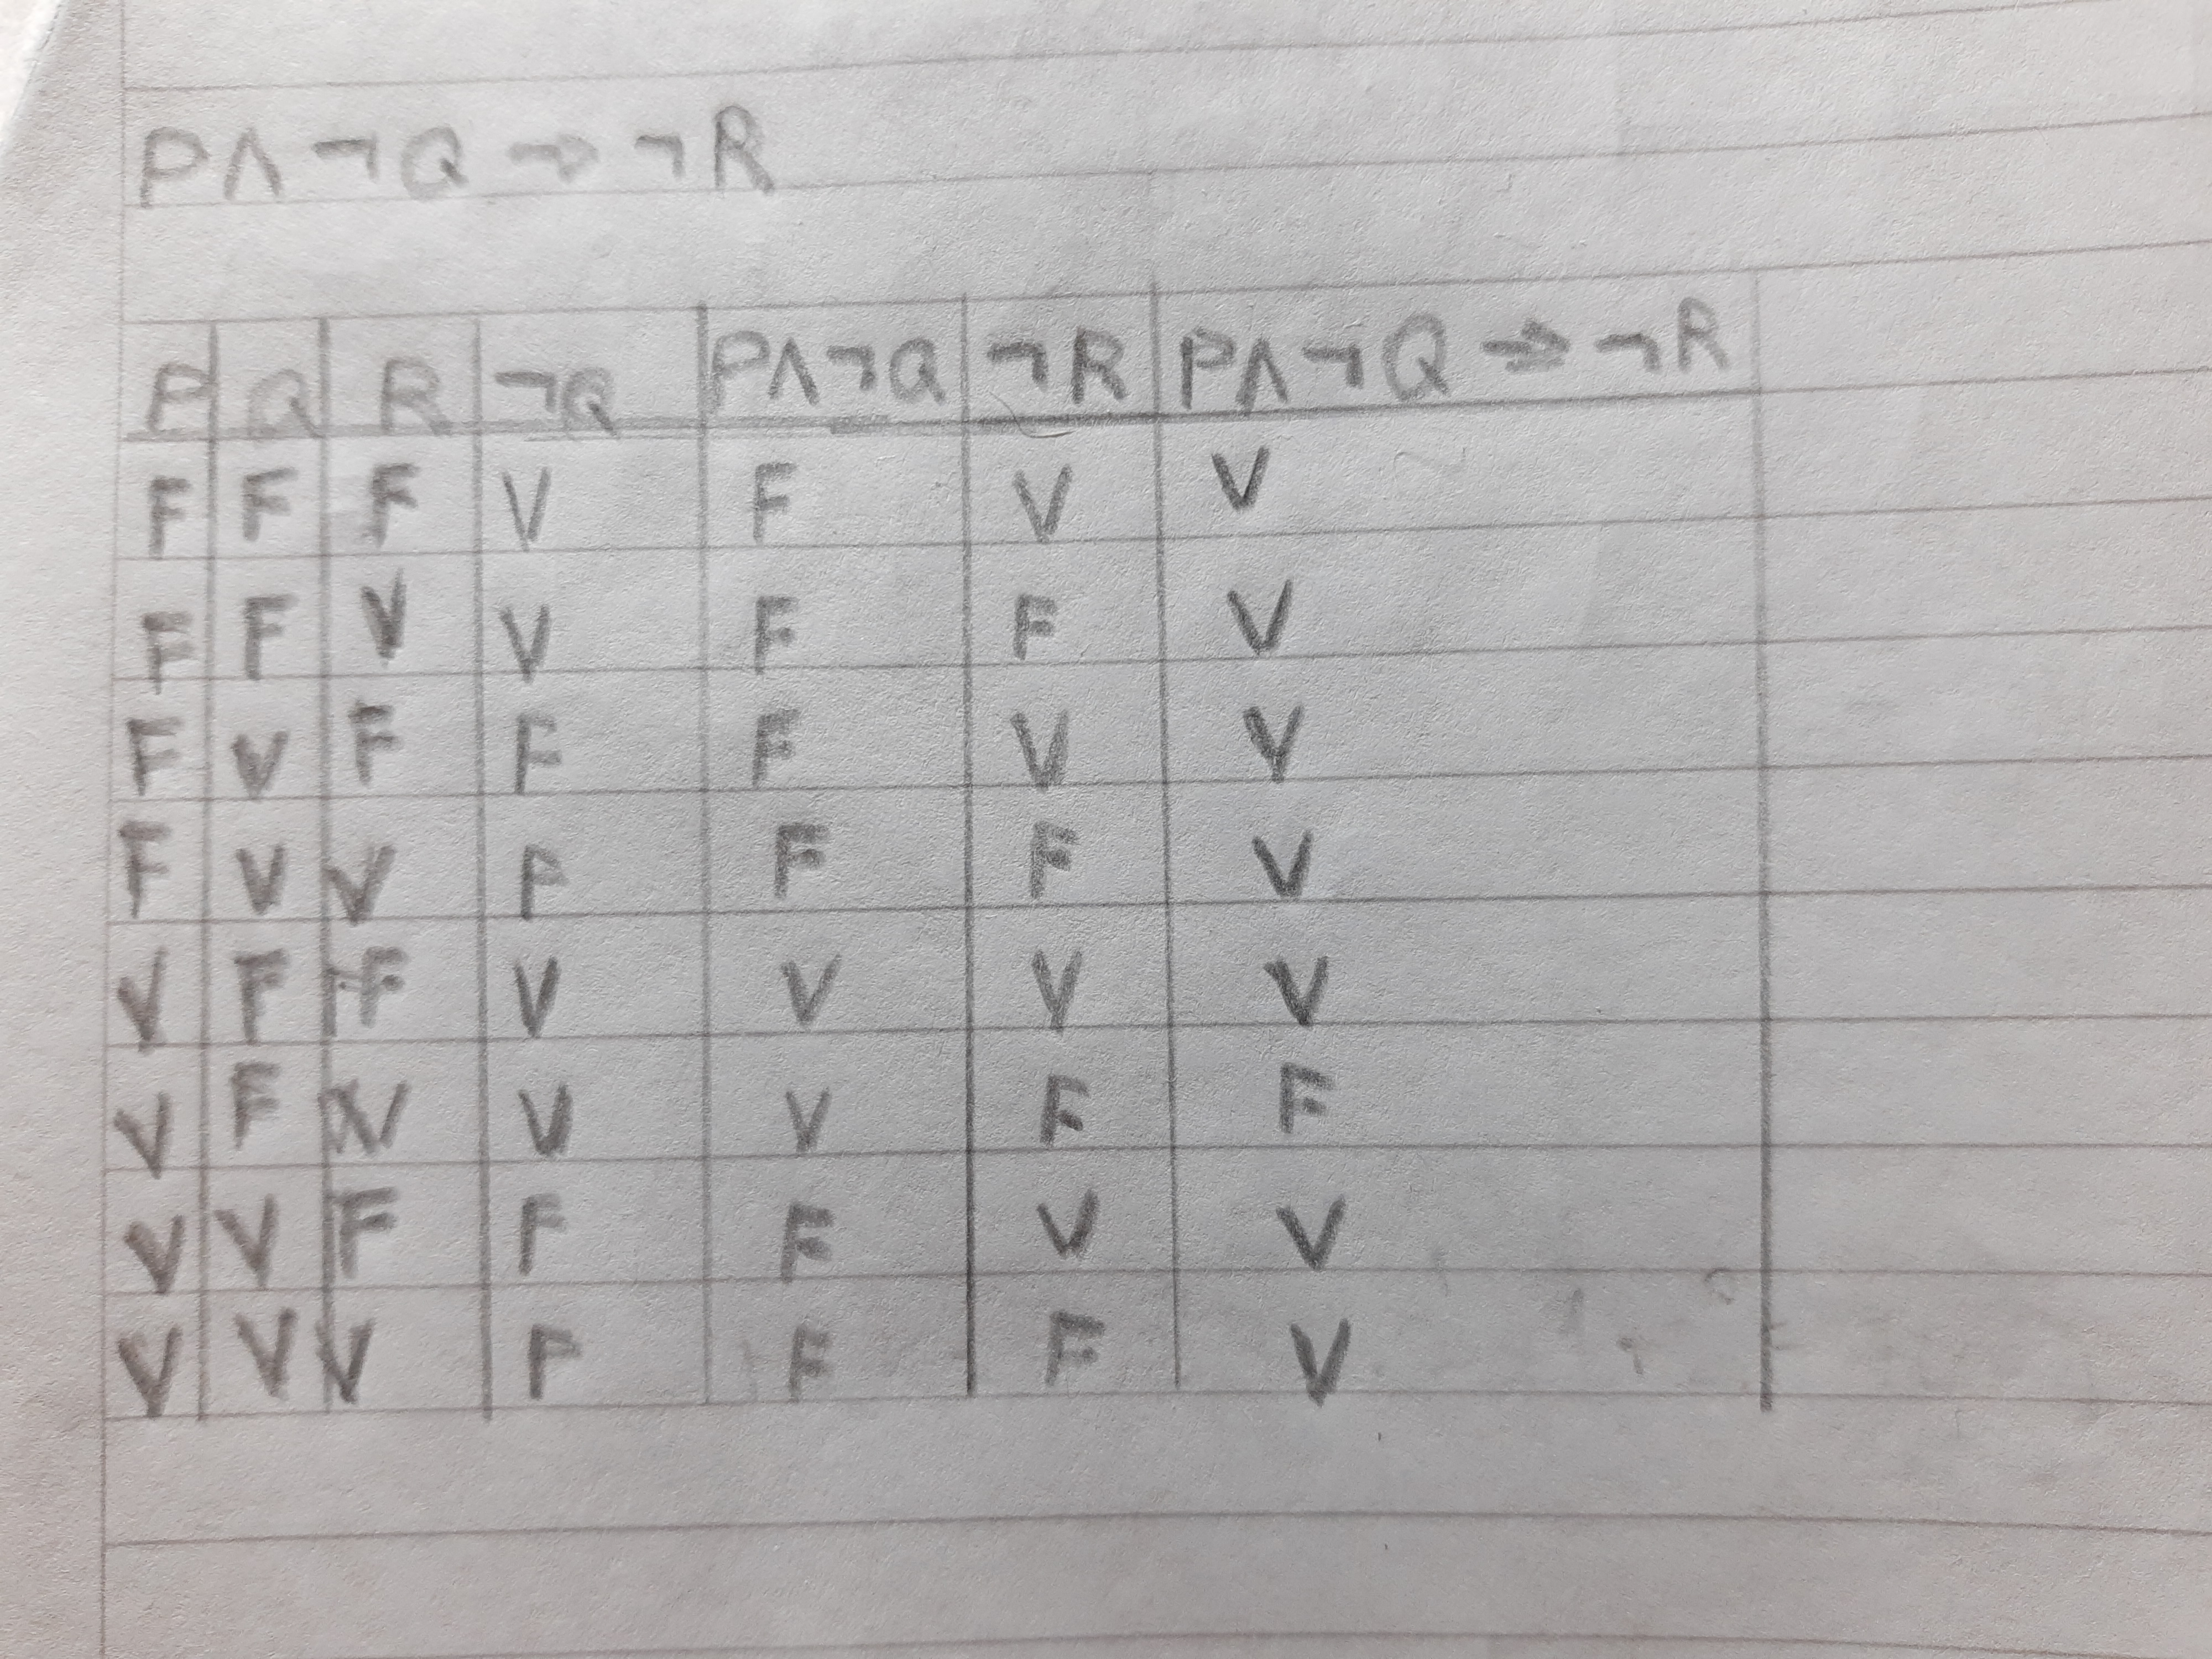 P∧¬Q→¬R
P Q R ¬Q P∧¬Q ¬R P∧¬Q→¬R
F F F V F V V
F F V V F F V
F V F F F V V
F V V F F F V
V F F V V V V
V F V V V F F
V V F F F V V
V V V F F F V